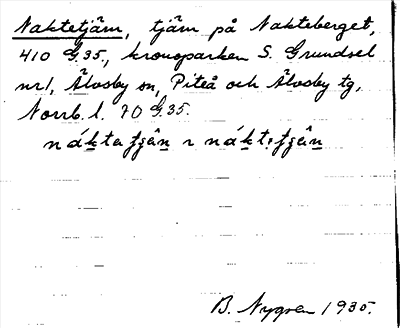 Naktetjärn, tjärn på Nakteberget,
410 G.35., kronoparken S. Grundsel
nr 1, Älvsby sn, Piteå och Älvsby tg,
Norrb. l. 70 G.35.
B. Nygren 1935.